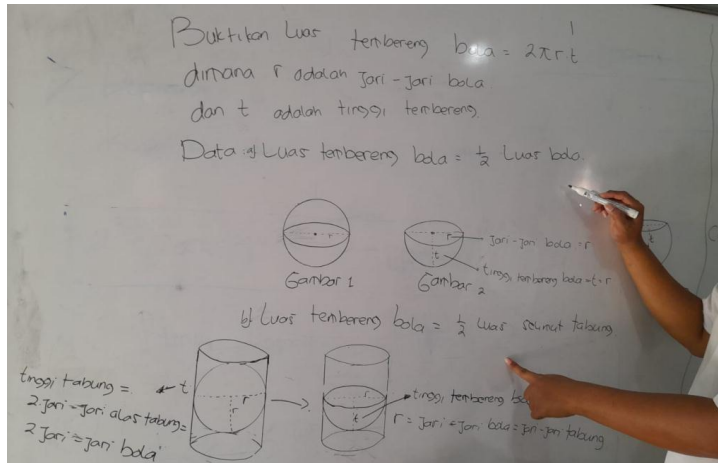 Buktikan Luas tembereng bola = 2πr.t
dimana r adalah jari-jari bola
dan t adalah tinggi tembereng.
Data: a) Luas tembereng bola = 1/2 Luas bola.
r
r
jari-jari bola = r
t
tinggi tembereng bola = t = r
t
Gambar 1
Gambar 2
b) Luas tembereng bola = 1/2 Luas selimut tabung
tinggi tabung =
t
2 jari-jari alas tabung =
2 jari-jari bola
r
r
r
t
tinggi tembereng
r = jari-jari bola = jari-jari tabung